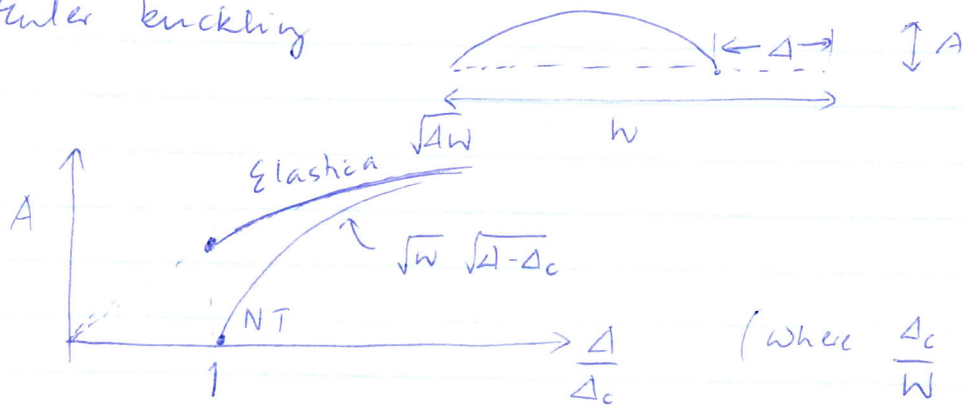 Euler buckling
Δ
A
W
√ΔW
Elastica
A
√W √Δ-Δc
NT
1
Δ/Δc
(where Δc/W